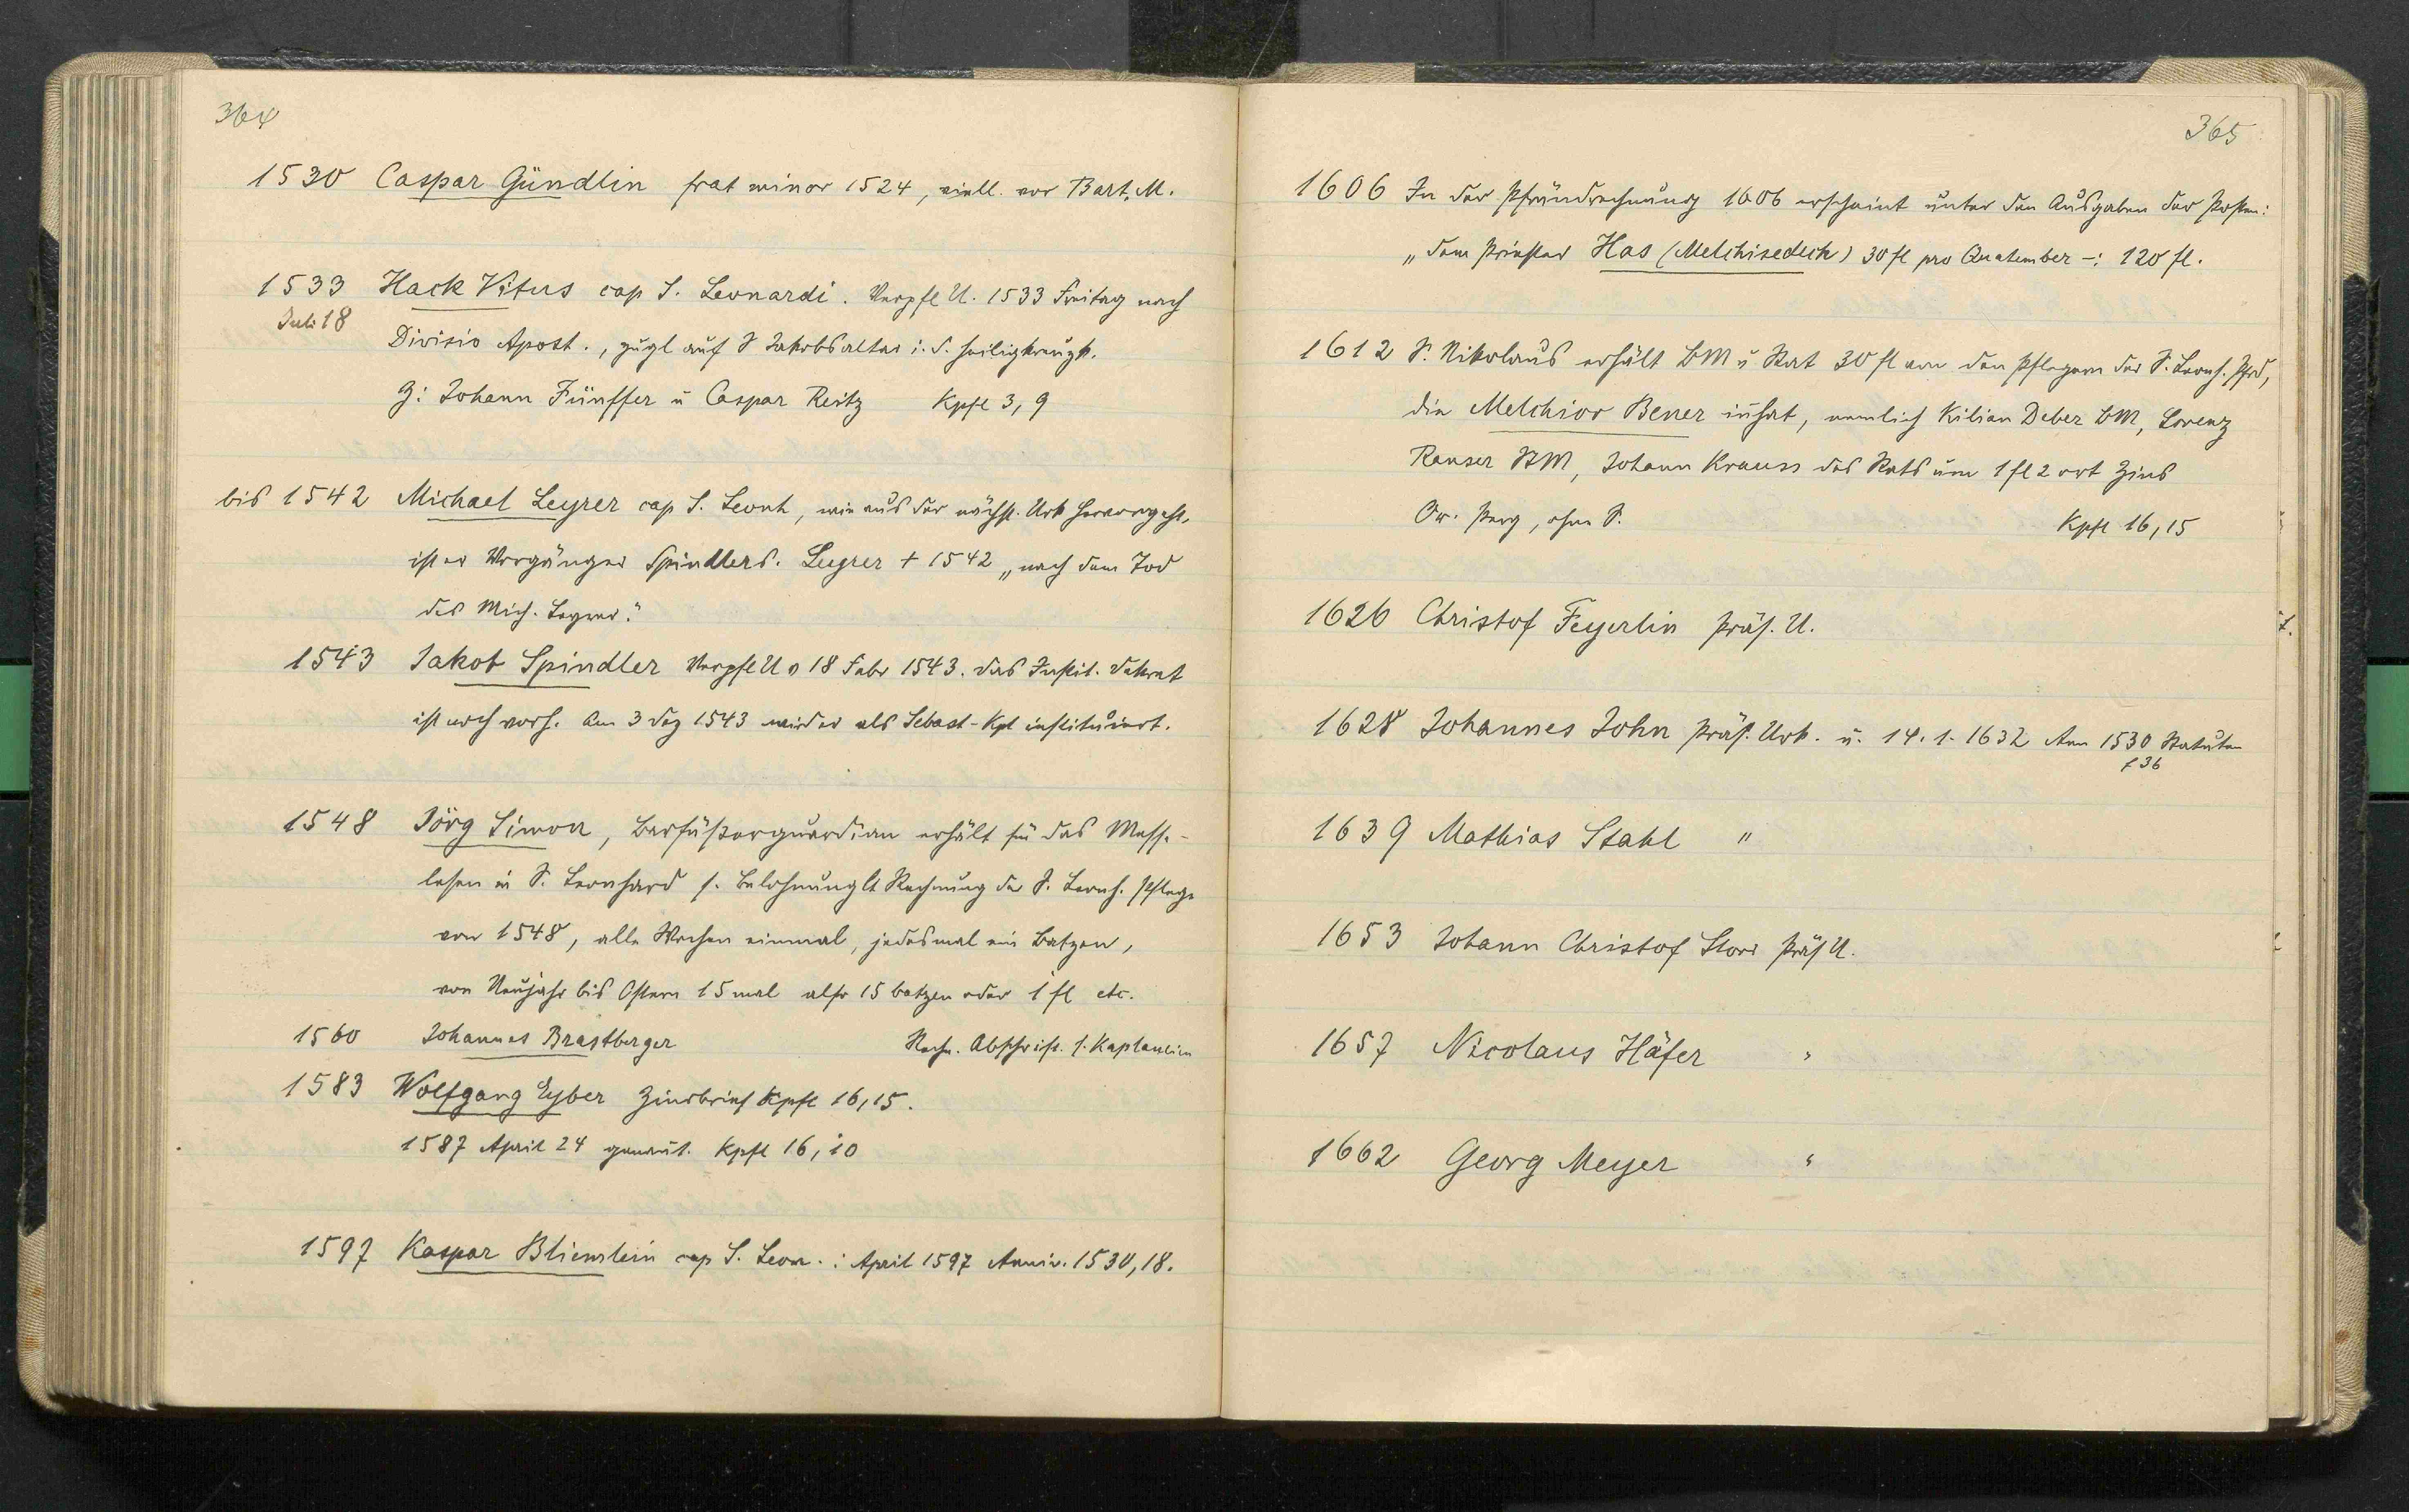 364
1530 Caspar Gündlin frat minor 1524, viell. vor Bart. M.
1533 Hack Vitus cap S. Leonardi. Verpfl U. 1533 Freitag nach
Juli 18
Divisio Apost., zugl auf S Jakobsaltar i. d. Heiligkreuzk.
Z: Johann Fünffer u Caspar Reitz Kpfl 3, 9
bis 1542 Michael Leyrer cap S. Leonh, wie aus der nächst. Urk hervorgeht,
ist er Vorgänger Spindlers. Leyrer + 1542 „nach dem Tod
des Mich. Leyrer."
1543 Jakob Spindler Verpfl U v 18 Febr 1543. das Instit. dekret
ist noch vorh. Am 3 Dez 1543 wird er als Sebast-Kpl instituiert.
1548 Jörg Simon, Barfüßerguardian erhält für das Messe-
lesen in S. Leonhard s. Belohnung lt Rechnung der S. Leonh. Pflege
von 1548, alle Wochen einmal, jedesmal ein Batzen,
von Neujahr bis Ostern 15 mal also 15 batzen oder 1 fl etc.
1560 Johannes Brastberger Rechn. Abschrift. s. Kaplaneien
1583 Wolfgang Eyber Zinsbrief Kpfl 16, 15.
1587 April 24 genannt. Kpfl 16, 10
1597 Kaspar Blienslein cap S. Leon. : April 1597 Anniv. 1530, 18.
365
1606 In der Pfründrechnung 1606 erscheint unter den Ausgaben der Posten:
„dem Priester Has (Melchisedech) 30 fl pro Quatember -: 120 fl.
1612 S. Nikolaus erhält BM u Rat 30 fl von den Pflegern der S. Leonh. Pfrd,
die Melchior Bener inhat, nemlich Kilian Deber BM, Lorenz
Ranser StM, Johann Krauss des Rats um 1 fl 2 ort Zins
Or. Perg, ohne S. Kpfl 16, 15
1626 Christof Feyerlin Präs. U.
1628 Johannes John Präs. Urk. u. 14. 1. 1632 Ann 1530 Statuten
f 36
1639 Mathias Stahl "
1653 Johann Christof Storr Präs U.
1657 Nicolaus Häfer "
1662 Georg Meyer "